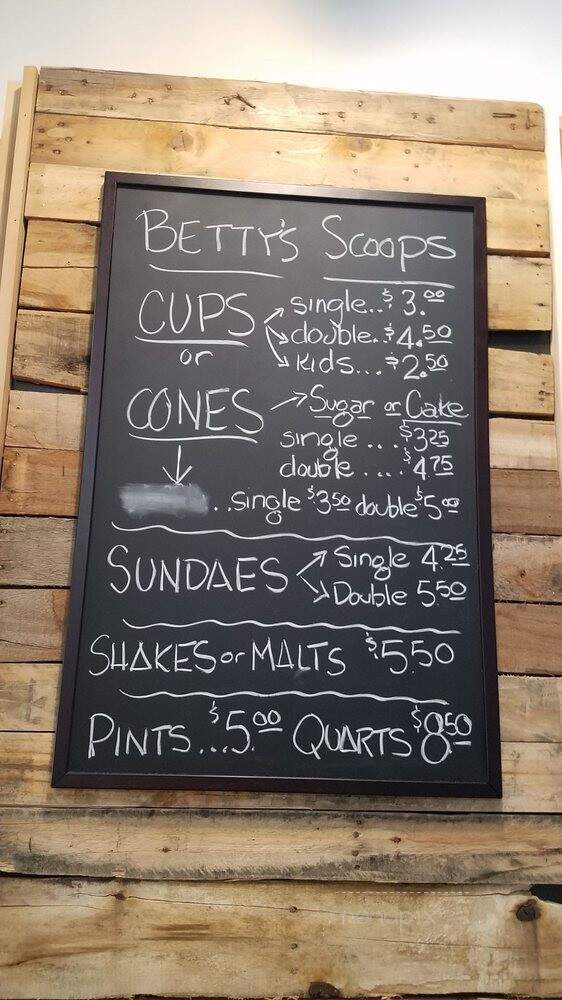 BETTY'S Scoops
CUPS single..$3.00
double..$4.50
or kids...$2.50
CONES Sugar or Cake
single ...$3.25
double .... $4.75
..single $3.50 double $5.00
SUNDAES Single 4.25
Double 5.50
SHAKES or MALTS $5.50
PINTS...$5.00 QUARTS $8.50